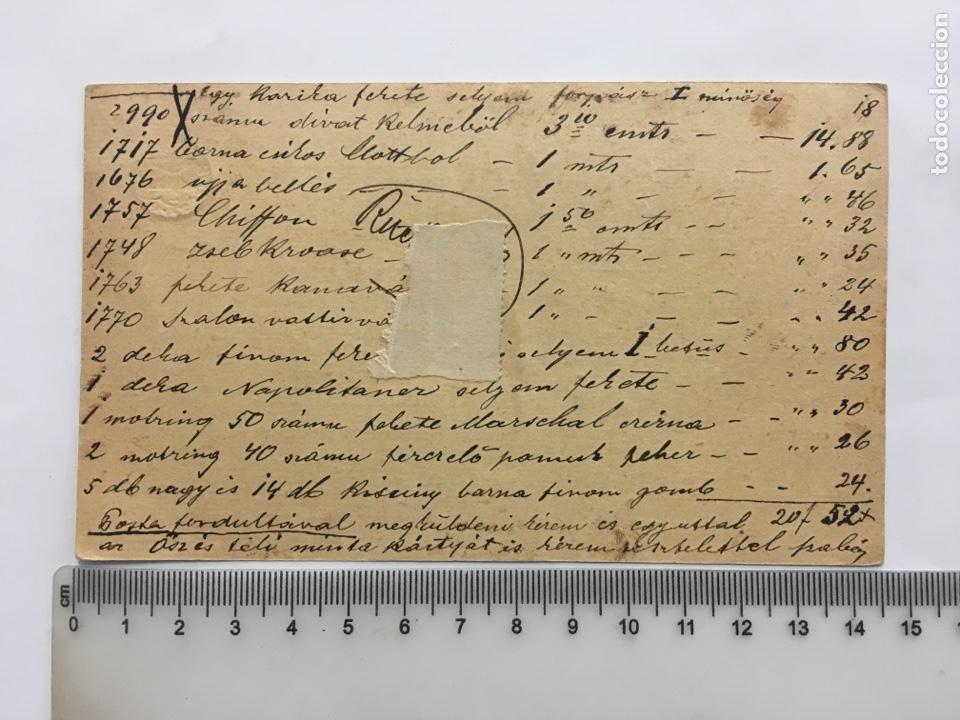 egy karika fekete selyem I minőség 18
2990 számu divat kelméből 3 10 cmtr — — 14.88
1717 barna csikos Clottbol — 1 mtr — — 1.65
1676 ujja bellés 1 " — — " " 46
1757 Chiffon 1 50 cmtr — — " " 32
1748 zseb — 1 " mtr — — " " 35
1763 fekete 1 " " — — " " 24
1770 szalon 1 " — — — " " 42
2 deka finom selyem I — " " 80
1 deka Napolitaner selyem fekete — — " " 42
1 motring 50 számu fekete Marschal cérna — — " " 30
2 motring 40 számu fércelő pamut feher — — " " 26
5 db nagy is 14 db barna finom gomb — — 24.
Posta fordultával megküldeni kérem és egyuttal 20 f 52
az Ősz és téli minta kártyát is kérem
cm 0 1 2 3 4 5 6 7 8 9 10 11 12 13 14 15
todocoleccion